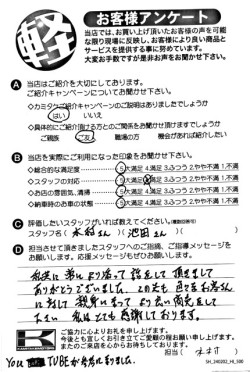 軽
お客様アンケート
当店では、お買い上げ頂いたお客様の声を可能
な限り現場に反映し、お客様により良い商品と
サービスを提供する事に努めています。
大変お手数ですが是非お声をお聞かせ下さい。
A 当店はご紹介を大切にしております。
ご紹介キャンペーンについてお聞かせ下さい。
◇カミタケご紹介キャンペーンのご説明はありましたでしょうか
はい いいえ
◇具体的にご紹介頂ける方とのご関係をお聞かせ頂けますでしょうか
ご親族 ご友人 職場の方 機会があれば紹介したい
B 当店を実際にご利用になった印象をお聞かせ下さい。
◇総合的な満足度 5大満足 4.満足 3.ふつう 2.やや不満 1.不満
◇スタッフの対応 5大満足 4.満足 3.ふつう 2.やや不満 1.不満
◇お店の雰囲気、清掃 5大満足 4.満足 3.ふつう 2.やや不満 1.不満
◇納車時のお車の状態 5大満足 4.満足 3.ふつう 2.やや不満 1.不満
C 評価したいスタッフがいれば教えてください。(複数回答可)
スタッフ名( 木村さん )( 池田さん )
D 担当させて頂きましたスタッフへのご指摘、ご指導メッセージを
お願いします。応援メッセージもぜひお願いします。
私共に 寄り添って 話をして 頂きまして
ありがとうございました。この先も お客さん
に対して 親身になって より良い商売をして
下さい 私はとても感謝しております。
ご協力に心よりお礼を申し上げます。
今後とも宜しくお引き立てご愛顧の程お願い申し上げます。
またのご来店を心からお待ちしております。
担当( 木村 )
SH_240202_HI_500
You TUBEが参考になりました。